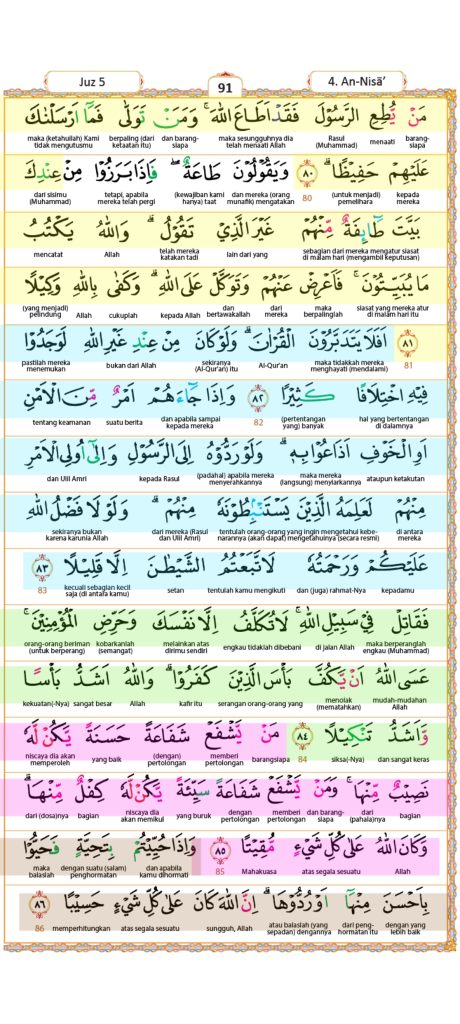 Juz 5
91
4. An-Nisā’
مَنْ يُّطِعِ الرَّسُوْلَ فَقَدْ اَطَاعَ اللّٰهَ ۚ وَمَنْ تَوَلّٰى فَمَآ اَرْسَلْنٰكَ
barang-siapa menaati Rasul (Muhammad) maka sesungguhnya dia telah menaati Allah dan barang-siapa berpaling (dari ketaatan itu) maka (ketahuilah) Kami tidak mengutusmu
عَلَيْهِمْ حَفِيْظًا ۗ ٨٠ وَيَقُوْلُوْنَ طَاعَةٌ ۖ فَاِذَا بَرَزُوْا مِنْ عِنْدِكَ
kepada mereka (untuk menjadi) pemelihara 80 dan mereka (orang munafik) mengatakan (kewajiban kami hanya) taat tetapi, apabila mereka telah pergi dari sisimu (Muhammad)
بَيَّتَ طَاۤىِٕفَةٌ مِّنْهُمْ غَيْرَ الَّذِيْ تَقُوْلُ ۗ وَاللّٰهُ يَكْتُبُ
sebagian dari mereka mengatur siasat di malam hari (mengambil keputusan) lain dari yang telah mereka katakan tadi Allah mencatat
مَا يُبَيِّتُوْنَ ۚ فَاَعْرِضْ عَنْهُمْ وَتَوَكَّلْ عَلَى اللّٰهِ ۗ وَكَفٰى بِاللّٰهِ وَكِيْلًا
siasat yang mereka atur di malam hari itu maka berpalinglah dari mereka dan bertawakallah kepada Allah cukuplah Allah (yang menjadi) pelindung
٨١ اَفَلَا يَتَدَبَّرُوْنَ الْقُرْاٰنَ ۗ وَلَوْ كَانَ مِنْ عِنْدِ غَيْرِ اللّٰهِ لَوَجَدُوْا
81 maka tidakkah mereka menghayati (mendalami) Al-Qur’an sekiranya (Al-Qur’an) itu bukan dari Allah pastilah mereka menemukan
فِيْهِ اخْتِلَافًا كَثِيْرًا ٨٢ وَاِذَا جَاۤءَهُمْ اَمْرٌ مِّنَ الْاَمْنِ
hal yang bertentangan di dalamnya (pertentangan yang) banyak 82 dan apabila sampai kepada mereka suatu berita tentang keamanan
اَوِ الْخَوْفِ اَذَاعُوْا بِهٖ ۗ وَلَوْ رَدُّوْهُ اِلَى الرَّسُوْلِ وَاِلٰٓى اُولِى الْاَمْرِ
ataupun ketakutan maka mereka (langsung) menyiarkannya (padahal) apabila mereka menyerahkannya kepada Rasul dan Ulil Amri
مِنْهُمْ لَعَلِمَهُ الَّذِيْنَ يَسْتَنْۢبِطُوْنَهٗ مِنْهُمْ ۗ وَلَوْلَا فَضْلُ اللّٰهِ
di antara mereka tentulah orang-orang yang ingin mengetahui kebe-narannya (akan dapat) mengetahuinya (secara resmi) dari mereka (Rasul dan Ulil Amri) sekiranya bukan karena karunia Allah
عَلَيْكُمْ وَرَحْمَتُهٗ لَاتَّبَعْتُمُ الشَّيْطٰنَ اِلَّا قَلِيْلًا ٨٣
kepadamu dan (juga) rahmat-Nya tentulah kamu mengikuti setan kecuali sebagian kecil saja (di antara kamu) 83
فَقَاتِلْ فِيْ سَبِيْلِ اللّٰهِ ۚ لَا تُكَلَّفُ اِلَّا نَفْسَكَ وَحَرِّضِ الْمُؤْمِنِيْنَ ۚ
maka berperanglah engkau (Muhammad) di jalan Allah engkau tidaklah dibebani melainkan atas dirimu sendiri kobarkanlah (semangat) orang-orang beriman (untuk berperang)
عَسَى اللّٰهُ اَنْ يَّكُفَّ بَأْسَ الَّذِيْنَ كَفَرُوْا ۗ وَاللّٰهُ اَشَدُّ بَأْسًا
mudah-mudahan Allah menolak (mematahkan) serangan orang-orang yang kafir itu Allah sangat besar kekuatan(-Nya)
وَّاَشَدُّ تَنْكِيْلًا ٨٤ مَنْ يَّشْفَعْ شَفَاعَةً حَسَنَةً يَّكُنْ لَّهٗ
dan sangat keras siksa(-Nya) 84 barangsiapa memberi pertolongan (dengan) pertolongan yang baik niscaya dia akan memperoleh
نَصِيْبٌ مِّنْهَا ۚ وَمَنْ يَّشْفَعْ شَفَاعَةً سَيِّئَةً يَّكُنْ لَّهٗ كِفْلٌ مِّنْهَا ۗ
bagian dari (pahala)nya dan barang-siapa memberi pertolongan dengan pertolongan yang buruk niscaya dia akan memikul bagian dari (dosa)nya
وَكَانَ اللّٰهُ عَلٰى كُلِّ شَيْءٍ مُّقِيْتًا ٨٥ وَاِذَا حُيِّيْتُمْ بِتَحِيَّةٍ فَحَيُّوْا
Allah atas segala sesuatu Mahakuasa 85 dan apabila kamu dihormati dengan suatu (salam) penghormatan maka balaslah
بِاَحْسَنَ مِنْهَآ اَوْ رُدُّوْهَا ۗ اِنَّ اللّٰهَ كَانَ عَلٰى كُلِّ شَيْءٍ حَسِيْبًا ٨٦
dengan yang lebih baik dari peng-hormatan itu atau balaslah (yang sepadan) dengannya sungguh, Allah atas segala sesuatu memperhitungkan 86